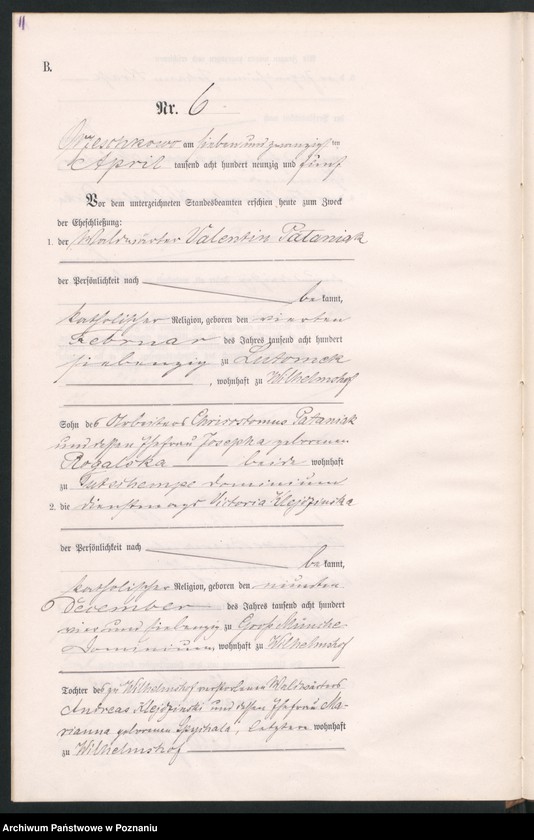 11
B.
Nr. 6
Orzeschkowo am sieben und zwanzigsten
April tausend acht hundert neunzig und fünf
Vor dem unterzeichneten Standesbeamten erschien heute zum Zweck
der Eheschließung:
1. der Waldwärter Valentin Pataniak
der Persönlichkeit nach
bekannt,
katholischer Religion, geboren den vierten
Februar des Jahres tausend acht hundert
siebenzig zu Lutomek
, wohnhaft zu Wilhelmshof
Sohn des Arbeiters Pataniak
und dessen Ehefrau Josepha geborenen
Rogalska beide wohnhaft
zu Dominium
2. die Dienstmagd Victoria Klejdzinska
der Persönlichkeit nach
bekannt,
katholischer Religion, geboren den neunten
December des Jahres tausend acht hundert
vier und siebenzig zu Groß Münche
Dominium, wohnhaft zu Wilhelmshof
Tochter des zu Wilhelmshof verstorbenen Waldwärters
Andreas Klejdzinski und dessen Ehefrau Ma-
rianna geborenen Spychala, letztere wohnhaft
zu Wilhelmshof
Archiwum Państwowe w Poznaniu